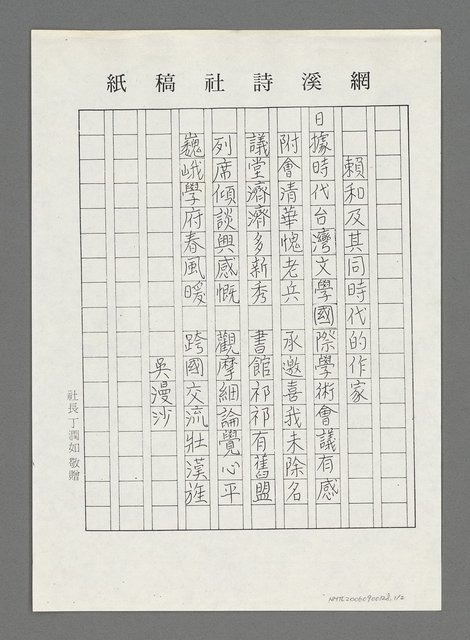 網溪詩社稿紙
賴和及其同時代的作家
日據時代台灣文學國際學術會議有感
附會清華愧老兵　承邀喜我未除名
議堂濟濟多新秀　書館祁祁有舊盟
列席傾談興感慨　觀摩細論覺心平
巍峨學府春風暖　跨國交流壯漢旌
吳漫沙
社長丁潤如敬贈
NMTL20060900128, 1/2